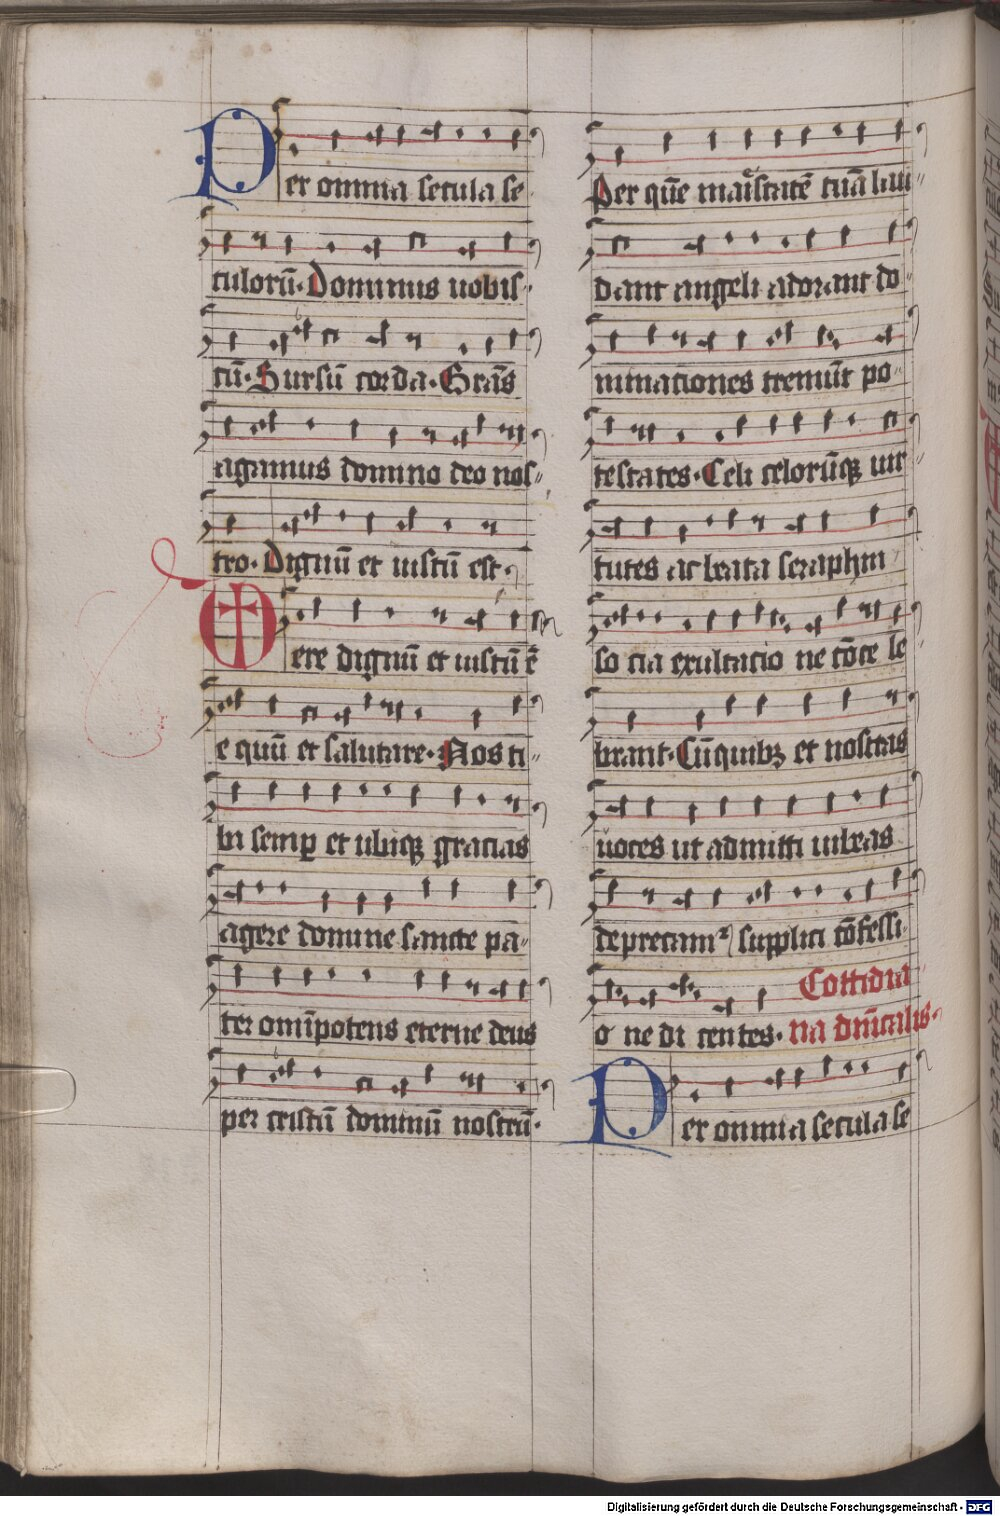 Per omnia secula se-
culorū. Dominus uobis-
cū. Sursū corda. Grās
agamus domino deo nos-
tro. Dignū et iustū est.
Vere dignū et iustū ē
e quū et salutare. Nos ti-
bi semꝑ et ubiqꝫ gracias
agere domine sancte pa-
ter om̄ipotens eterne deus
per cristū dominū nostrū.
Per quē maiestatē tuā lau-
dant angeli adorant do-
minationes tremūt po-
testates. Celi celorūqꝫ uir
tutes ac beata seraphin
so cia exultatio ne cōce le
brant. Cū quibꝫ et nostras
uoces ut admitti iubeas
deprecamur supplici cōfessi-
o ne di centes. Cottidia
na dn̄icalis.
Per omnia secula se
Digitalisierung gefördert durch die Deutsche Forschungsgemeinschaft - DFG